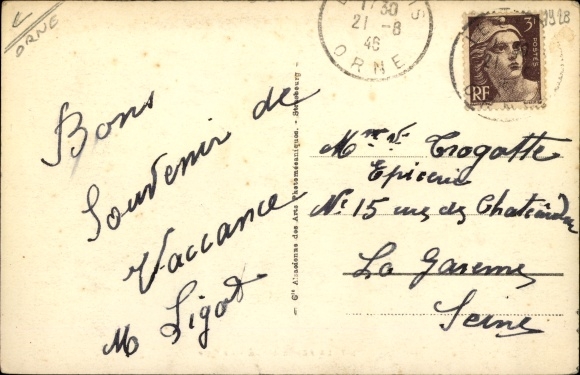 ORNE
IS
11 30
21 - 8
46
ORNE
3F
POSTES
RF
Bons
Souvenir de
Vaccance
M Ligot
Cie Alsacienne des Arts Photomécaniques. - Strasbourg
Mme Vve Trogatte
Epicerie
No 15 rue de Chateaudun
La Garenne
Seine